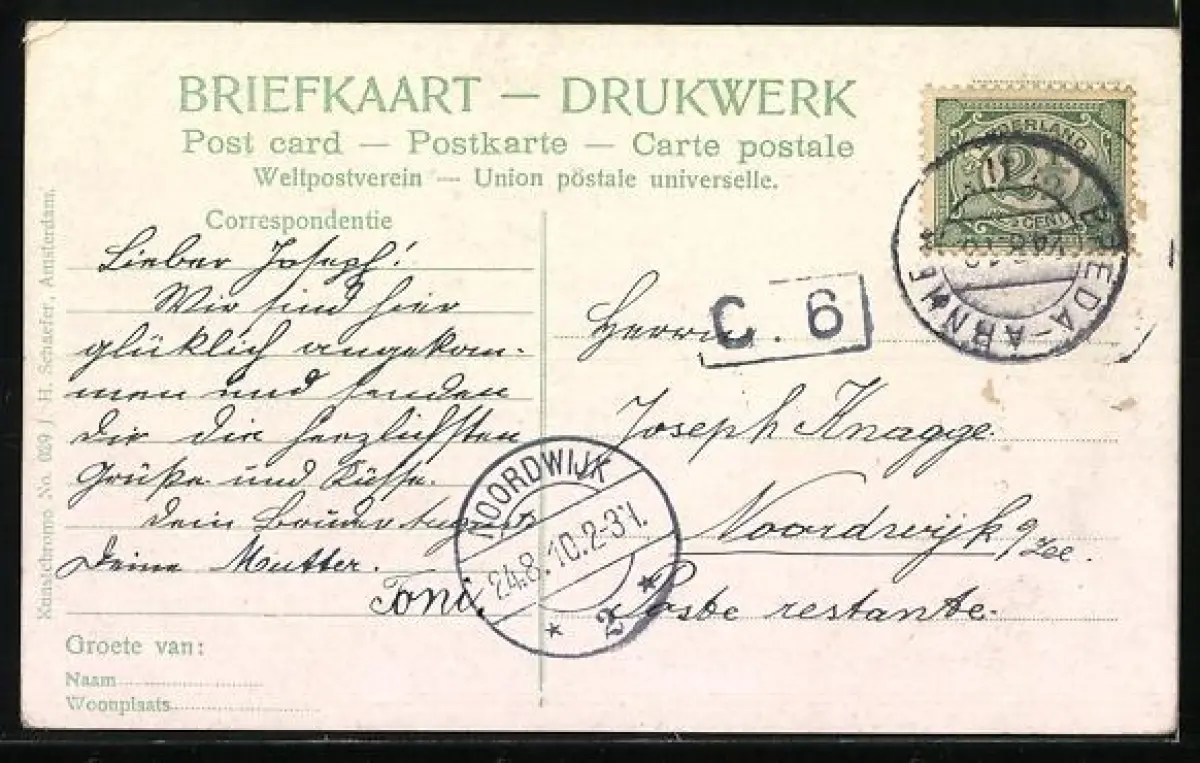 BRIEFKAART — DRUKWERK
Post card — Postkarte — Carte postale
Weltpostverein — Union pöstale universelle.
Correspondentie
Lieber Joseph!
Wir sind hier
glücklich angekom-
men und senden
Dir die herzlichsten
Grüße und Küsse.
Dein Bruder August
Deine Mutter.
Toni.
Groete van:
Naam
Woonplaats
Kunstchromo No. 029 / H. Schaefer, Amsterdam.
C. 6
Herrn
Joseph Knagge.
Noordwijk a/Zee.
Poste restante.
NOORDWIJK
24.8.10.2-3N.
2
NEDERLAND
2½
CENT
BREDA-ARNHEM